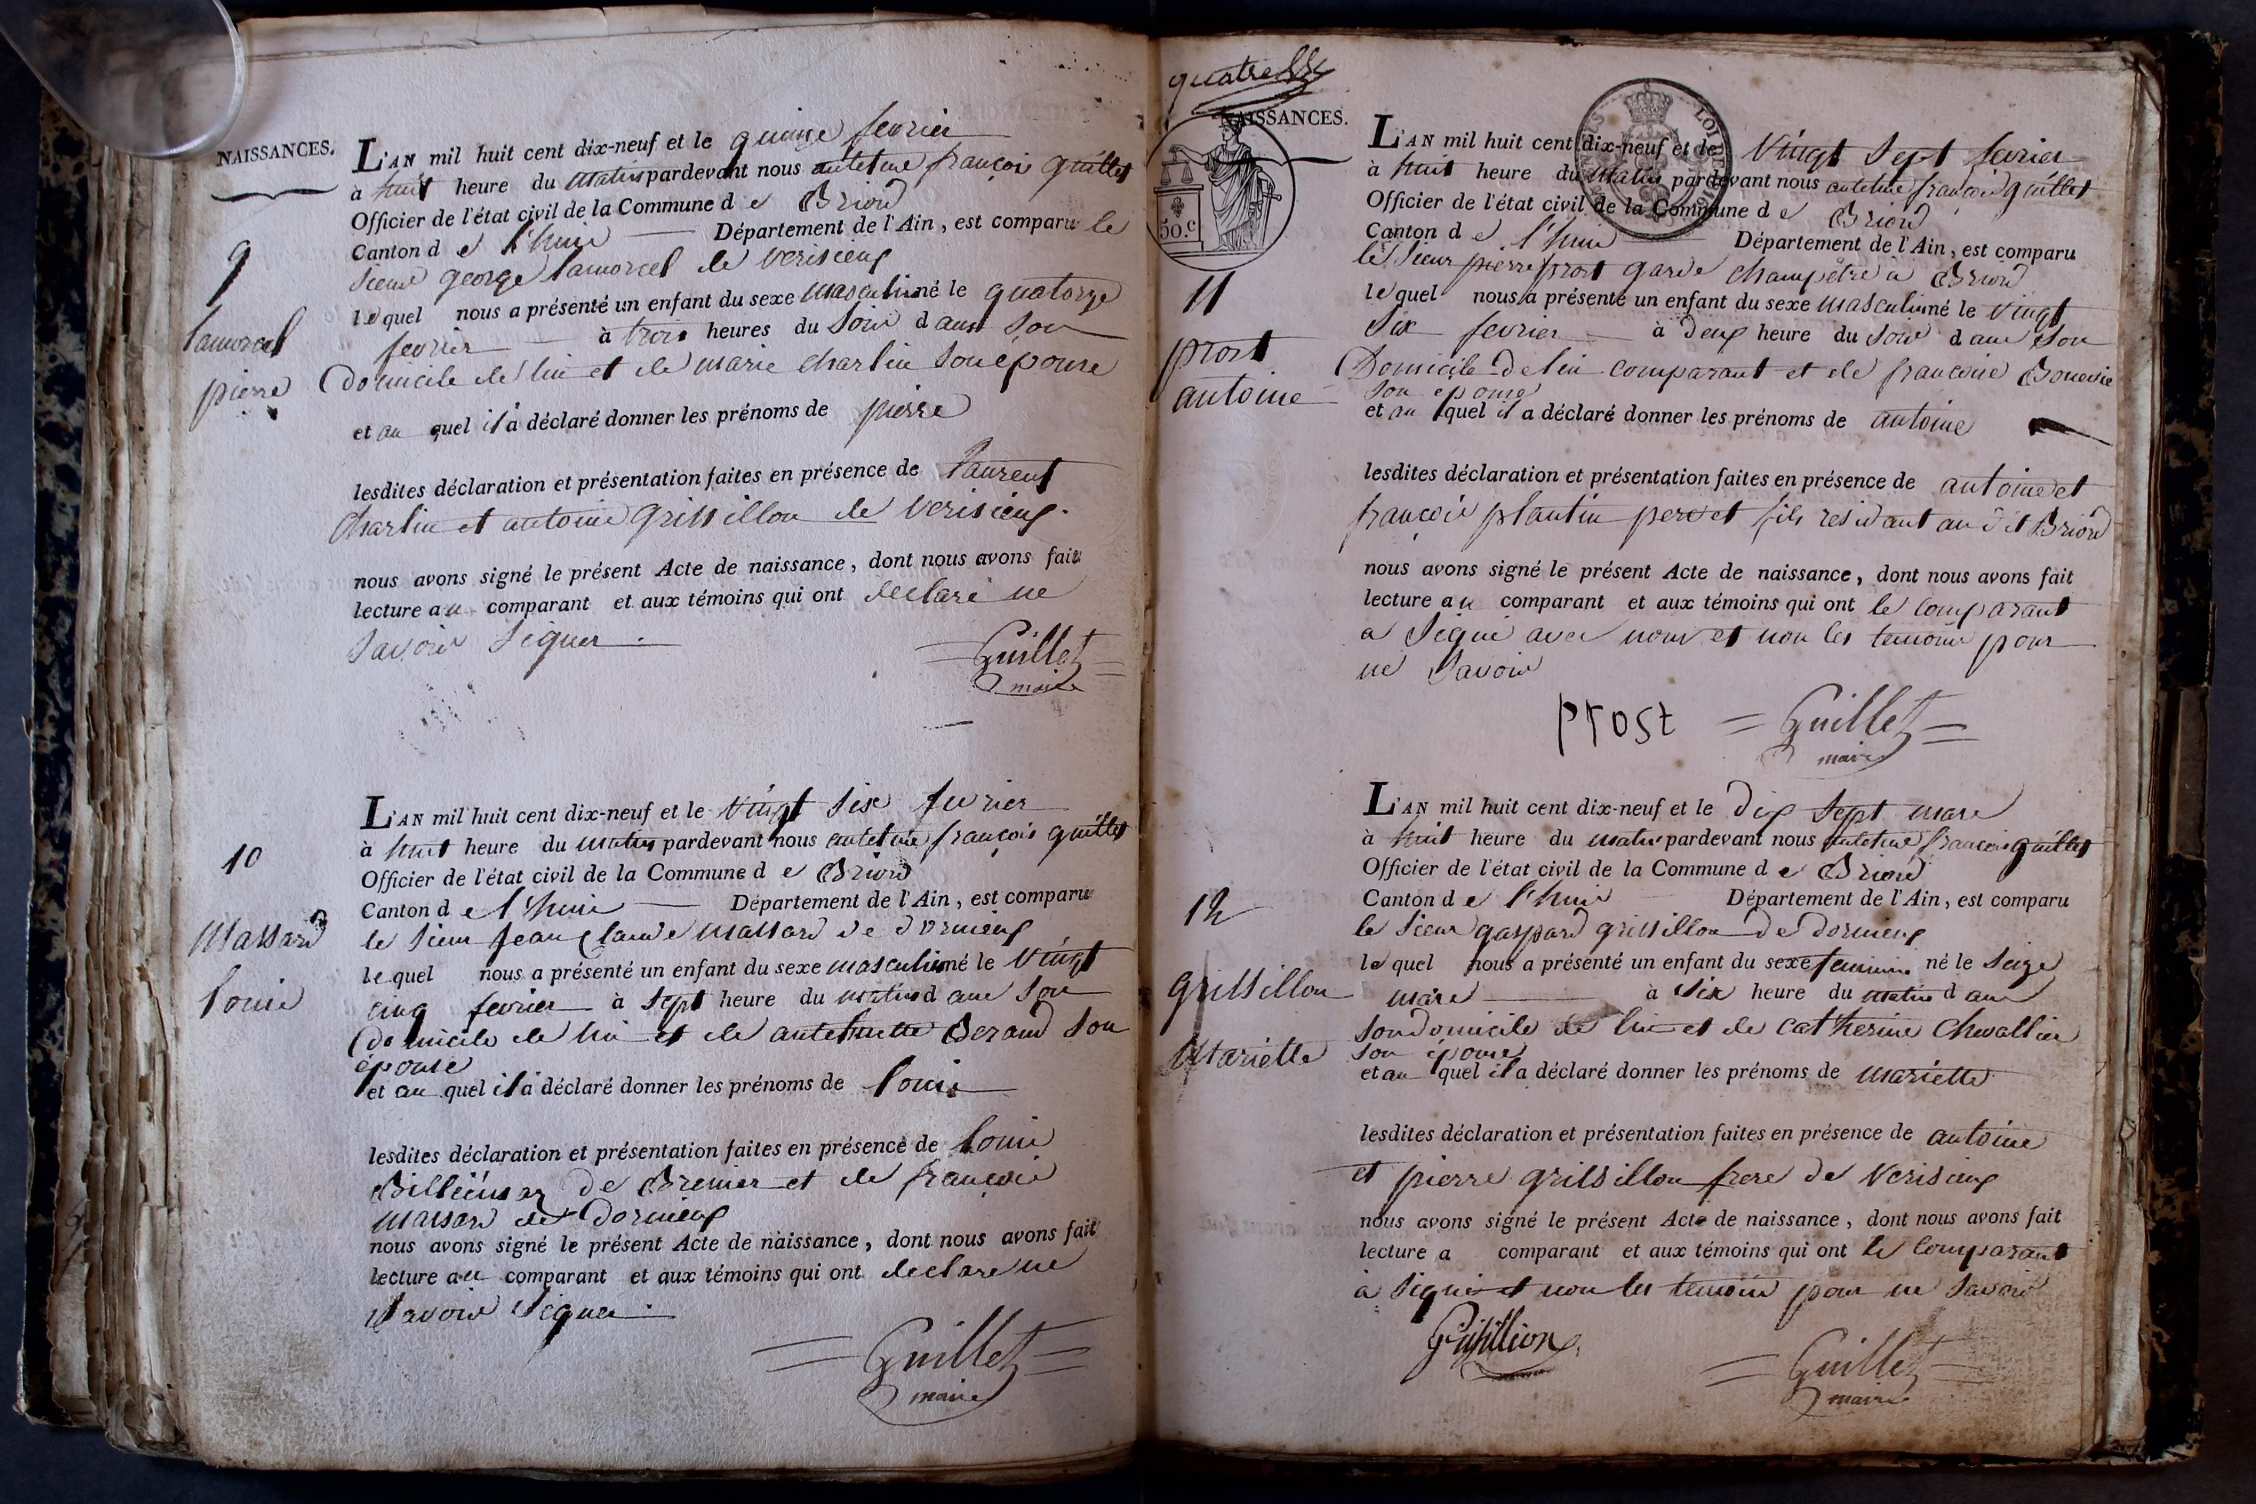 NAISSANCES.
L'AN mil huit cent dix-neuf et le quinze fevrier
à huit heure du matin pardevant nous antelme françois guillet
Officier de l'état civil de la Commune d e Briord
Canton d e l'huis Département de l'Ain, est comparu le
sieur george lamorcel de verisieux
9
le quel nous a présenté un enfant du sexe masculin né le quatorze
lamorcel
fevrier à trois heures du soir dans son
pierre
Domicile de lui et de marie charlin son épouse
et au quel il a déclaré donner les prénoms de pierre
lesdites déclaration et présentation faites en présence de laurent
Charlin et antoine grissillon de verisieux.
nous avons signé le présent Acte de naissance, dont nous avons fait
lecture au comparant et aux témoins qui ont declaré ne
savoir signer.
Guillet
maire
L'AN mil huit cent dix-neuf et le vingt six fevrier
à huit heure du matin pardevant nous antelme françois guillet
10
Officier de l'état civil de la Commune d e Briord
Canton d e l'huis Département de l'Ain, est comparu
Massard
le sieur jean Claude massard de dornieux
le quel nous a présenté un enfant du sexe masculin né le vingt
louis
cinq fevrier à sept heure du matin d ans son
Domicile de lui et de antelmette Beraud son
épouse
et au quel il a déclaré donner les prénoms de louis
lesdites déclaration et présentation faites en présence de louis
de Brenier et de françois
massard de Dornieux
nous avons signé le présent Acte de naissance, dont nous avons fait
lecture au comparant et aux témoins qui ont declare ne
savoir signer.
Guillet
maire
quatre
NAISSANCES.
50.c
LOI
L'AN mil huit cent dix-neuf et le vingt sept fevrier
à huit heure du matin pardevant nous antelme françois guillet
Officier de l'état civil de la Commune d e Briord
Canton d e l'huis Département de l'Ain, est comparu
le sieur pierre prost garde champêtre à Briord
11
le quel nous a présenté un enfant du sexe masculin né le vingt
six fevrier à deux heure du soir d ans son
prost
Domicile de lui comparant et de francoise
antoine
son epouse
et au quel il a déclaré donner les prénoms de antoine
lesdites déclaration et présentation faites en présence de antoine et
françois plantin pere et fils residant au dit Briord
nous avons signé le présent Acte de naissance, dont nous avons fait
lecture au comparant et aux témoins qui ont le comparant
a signé avec nous et non les temoins pour
ne savoir
prost Guillet
maire
L'AN mil huit cent dix-neuf et le dix sept mars
à huit heure du matin pardevant nous antelme françois guillet
Officier de l'état civil de la Commune d e Briord
12
Canton d e l'huis Département de l'Ain, est comparu
le sieur gaspard grissillon de dornieux
le quel nous a présenté un enfant du sexe feminin né le seize
grissillon
mars à six heure du matin d ans
son domicile de lui et de catherine Chevallier
Mariette
son épouse
et au quel il a déclaré donner les prénoms de mariette
lesdites déclaration et présentation faites en présence de antoine
et pierre grissillon frere de verisieux
nous avons signé le présent Acte de naissance, dont nous avons fait
lecture a comparant et aux témoins qui ont le comparant
à signé et non les temoins pour ne savoir
Grisillion
Guillet
maire